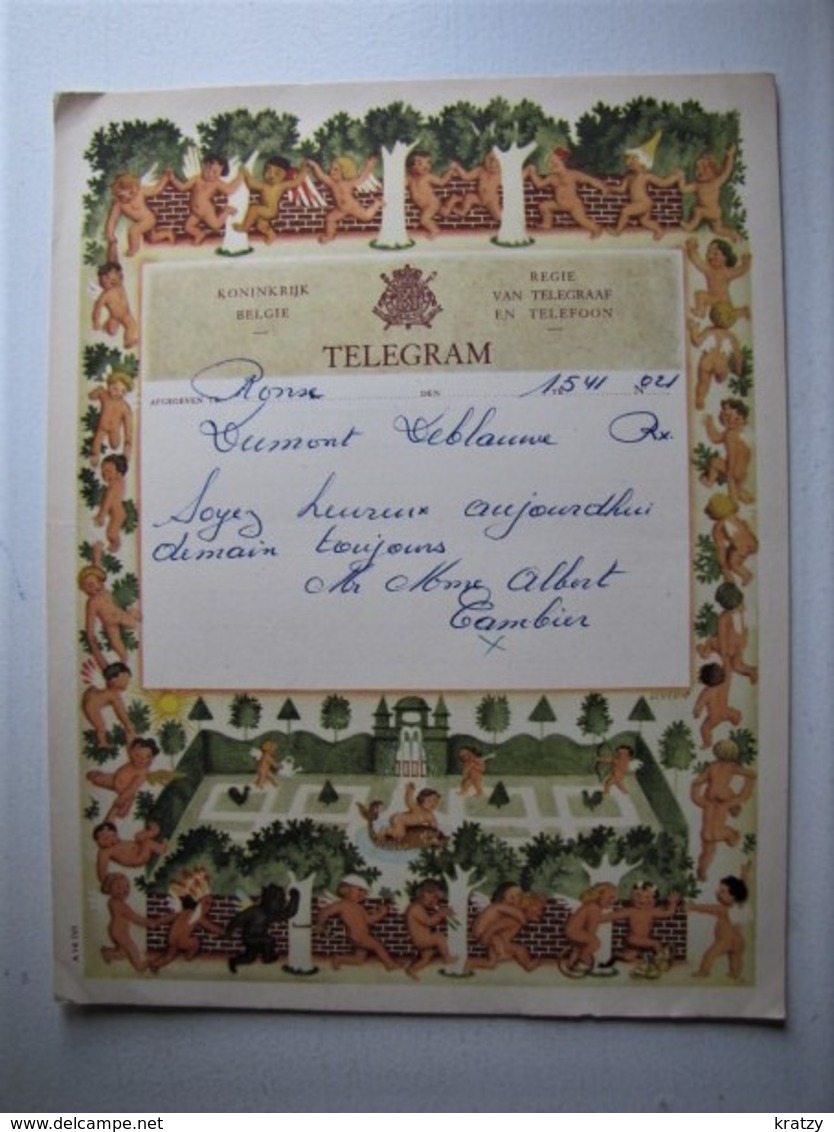 KONINKRIJK
BELGIE
REGIE
VAN TELEGRAAF
EN TELEFOON
TELEGRAM
AFGEGEVEN TE Ronse DEN TE 1541 N 021
Dumont Deblauwe Rx.
Soyez heureux aujourdhui
demain toujours
Mr Mme Albert
Cambier
delcampe.net
kratzy